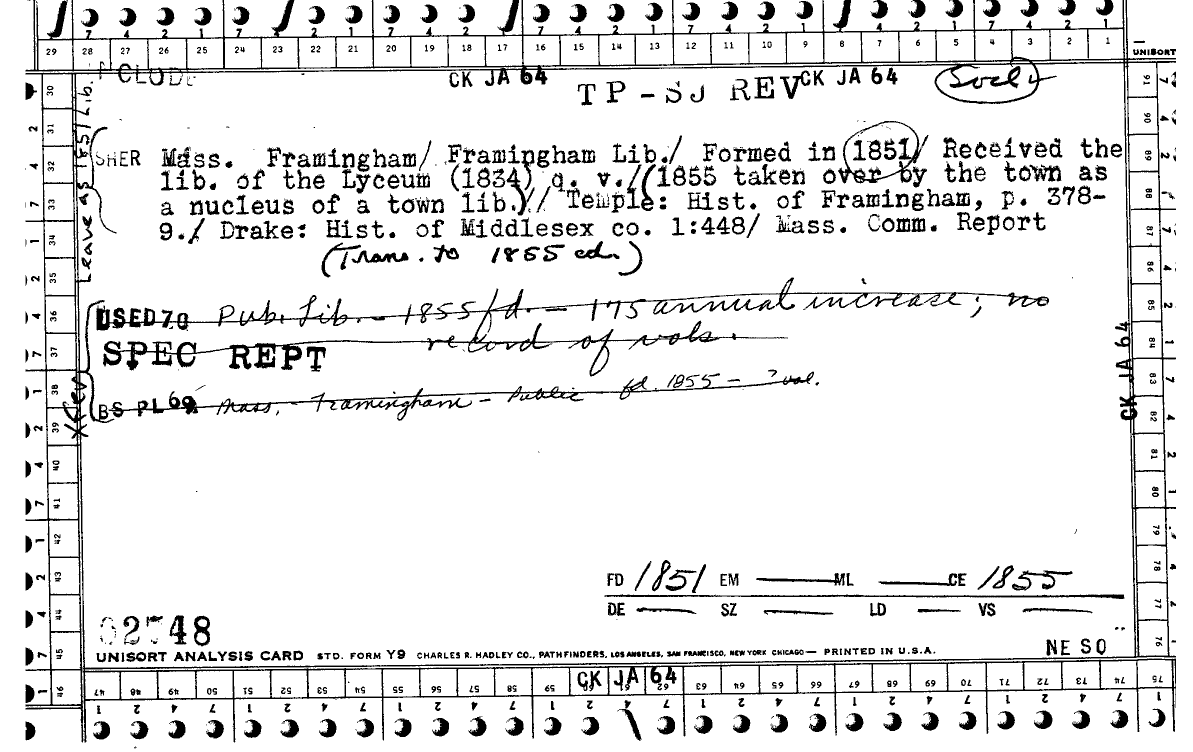 7 4 2 1 7 4 2 1 7 4 2 1 7 4 2 1 7 4 2 1 7 4 2 1 7 4 2 1
29 28 27 26 25 24 23 22 21 20 19 18 17 16 15 14 13 12 11 10 9 8 7 6 5 4 3 2 1
UNISORT
CLODE
CK JA 64
TP-SJ REV
CK JA 64
Leave as 1851 Lib.
SHER Mass. Framingham/ Framingham Lib./ Formed in 1851/ Received the
lib. of the Lyceum (1834) q. v./(1855 taken over by the town as
a nucleus of a town lib.)/ Temple: Hist. of Framingham, p. 378-
9./ Drake: Hist. of Middlesex co. 1:448/ Mass. Comm. Report
(Trans. to 1855 ed.)
USED 70 Pub. Lib. - 1855 fd. - 175 annual increase; no
record of vols.
SPEC REPT
BS PL 69 Mass. - Framingham - Public - fd. 1855 - ? vol.
CK JA 64
FD 1851 EM — ML — CE 1855
DE — SZ — LD — VS —
62748
NE SO
UNISORT ANALYSIS CARD STD. FORM Y9 CHARLES R. HADLEY CO., PATHFINDERS, LOS ANGELES, SAN FRANCISCO, NEW YORK CHICAGO — PRINTED IN U.S.A.
CK JA 64
47 48 49 50 51 52 53 54 55 56 57 58 59 60 61 62 63 64 65 66 67 68 69 70 71 72 73 74 75